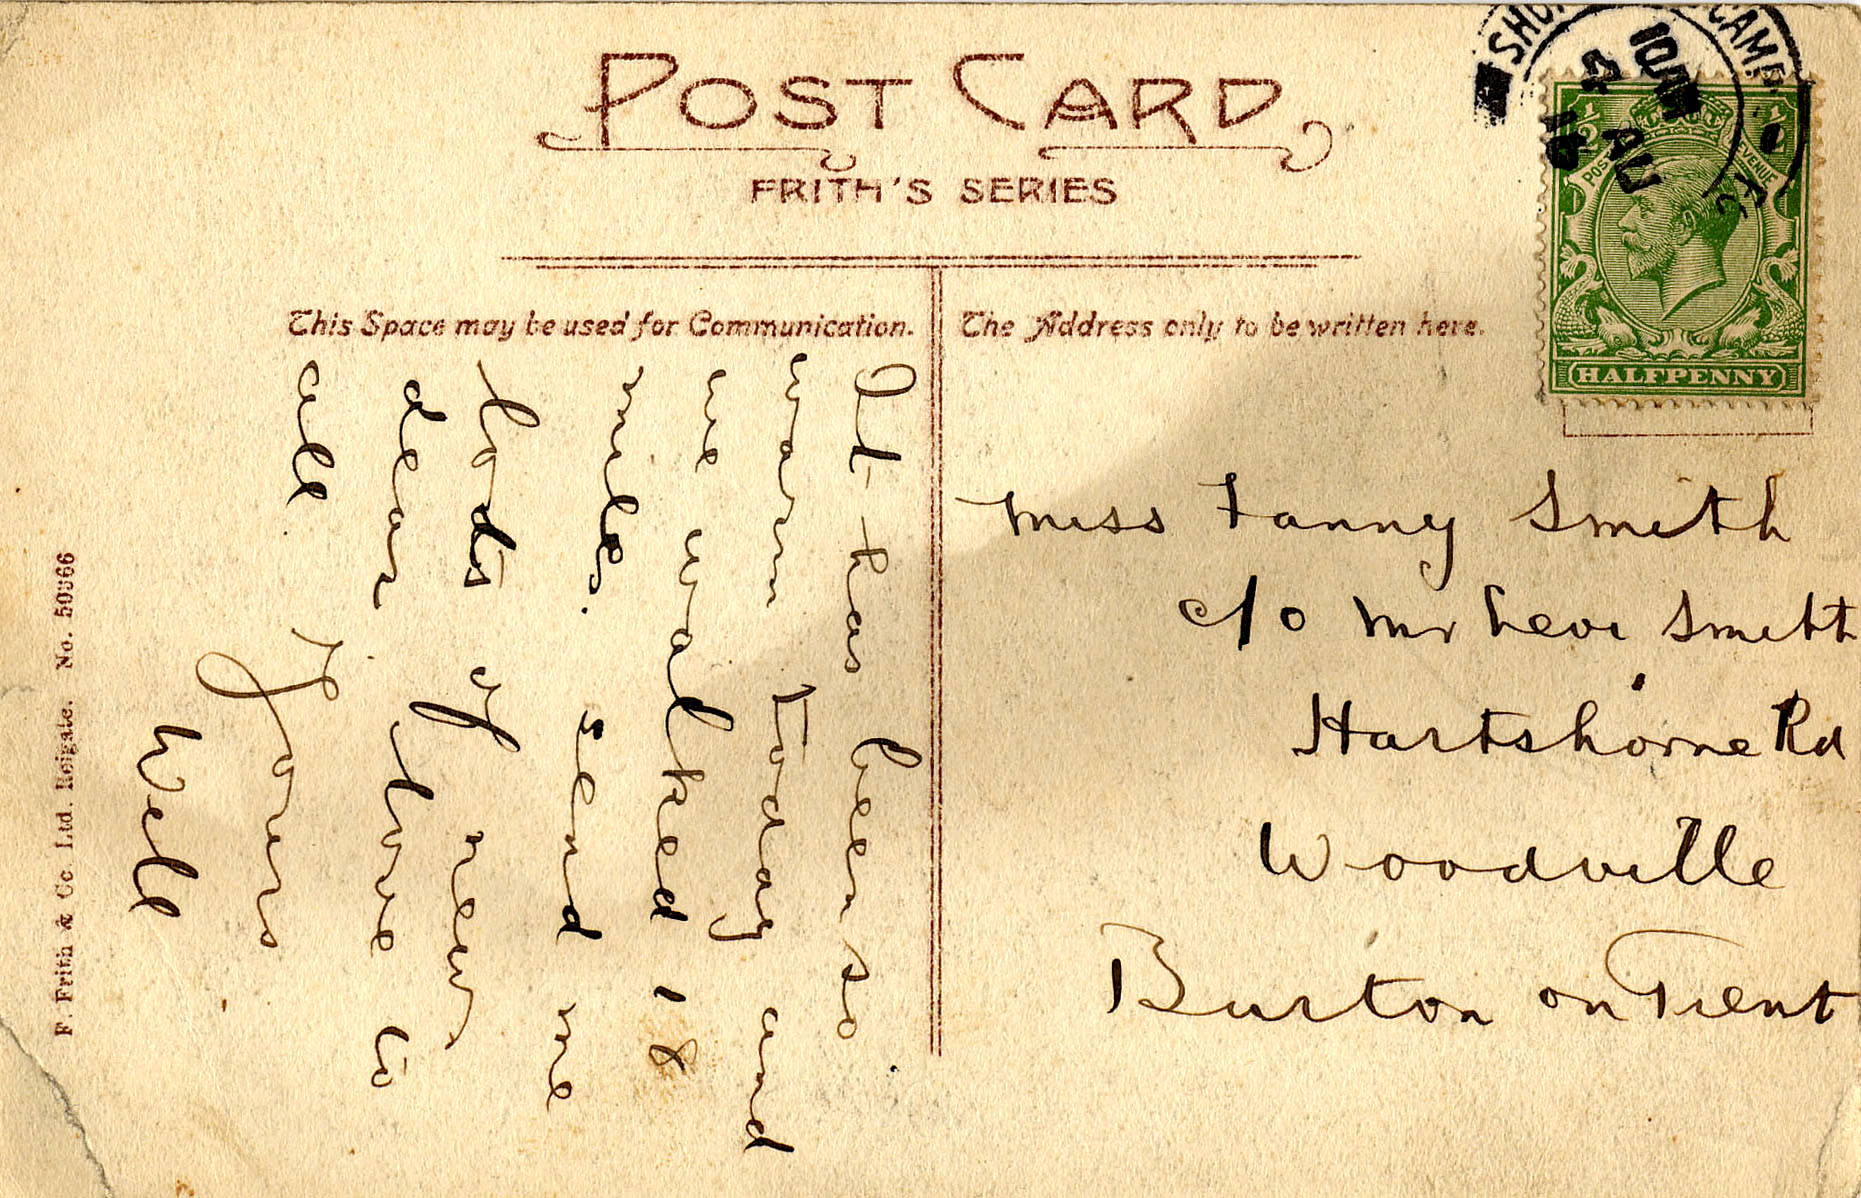 POST CARD
FRITH'S SERIES
This Space may be used for Communication.
The Address only to be written here.
It has been so
warm today and
we walked 18
mile. send me
lots of new
dear love to
all
Yours
Well
Miss Fanny Smith
c/o Mr Levi Smith
Hartshorne Rd
Woodville
Burton on Trent
F. Frith & Co. Ltd. Reigate. No.
½ ½
POSTAGE REVENUE
HALFPENNY
CAMP
10 AM
4 AU